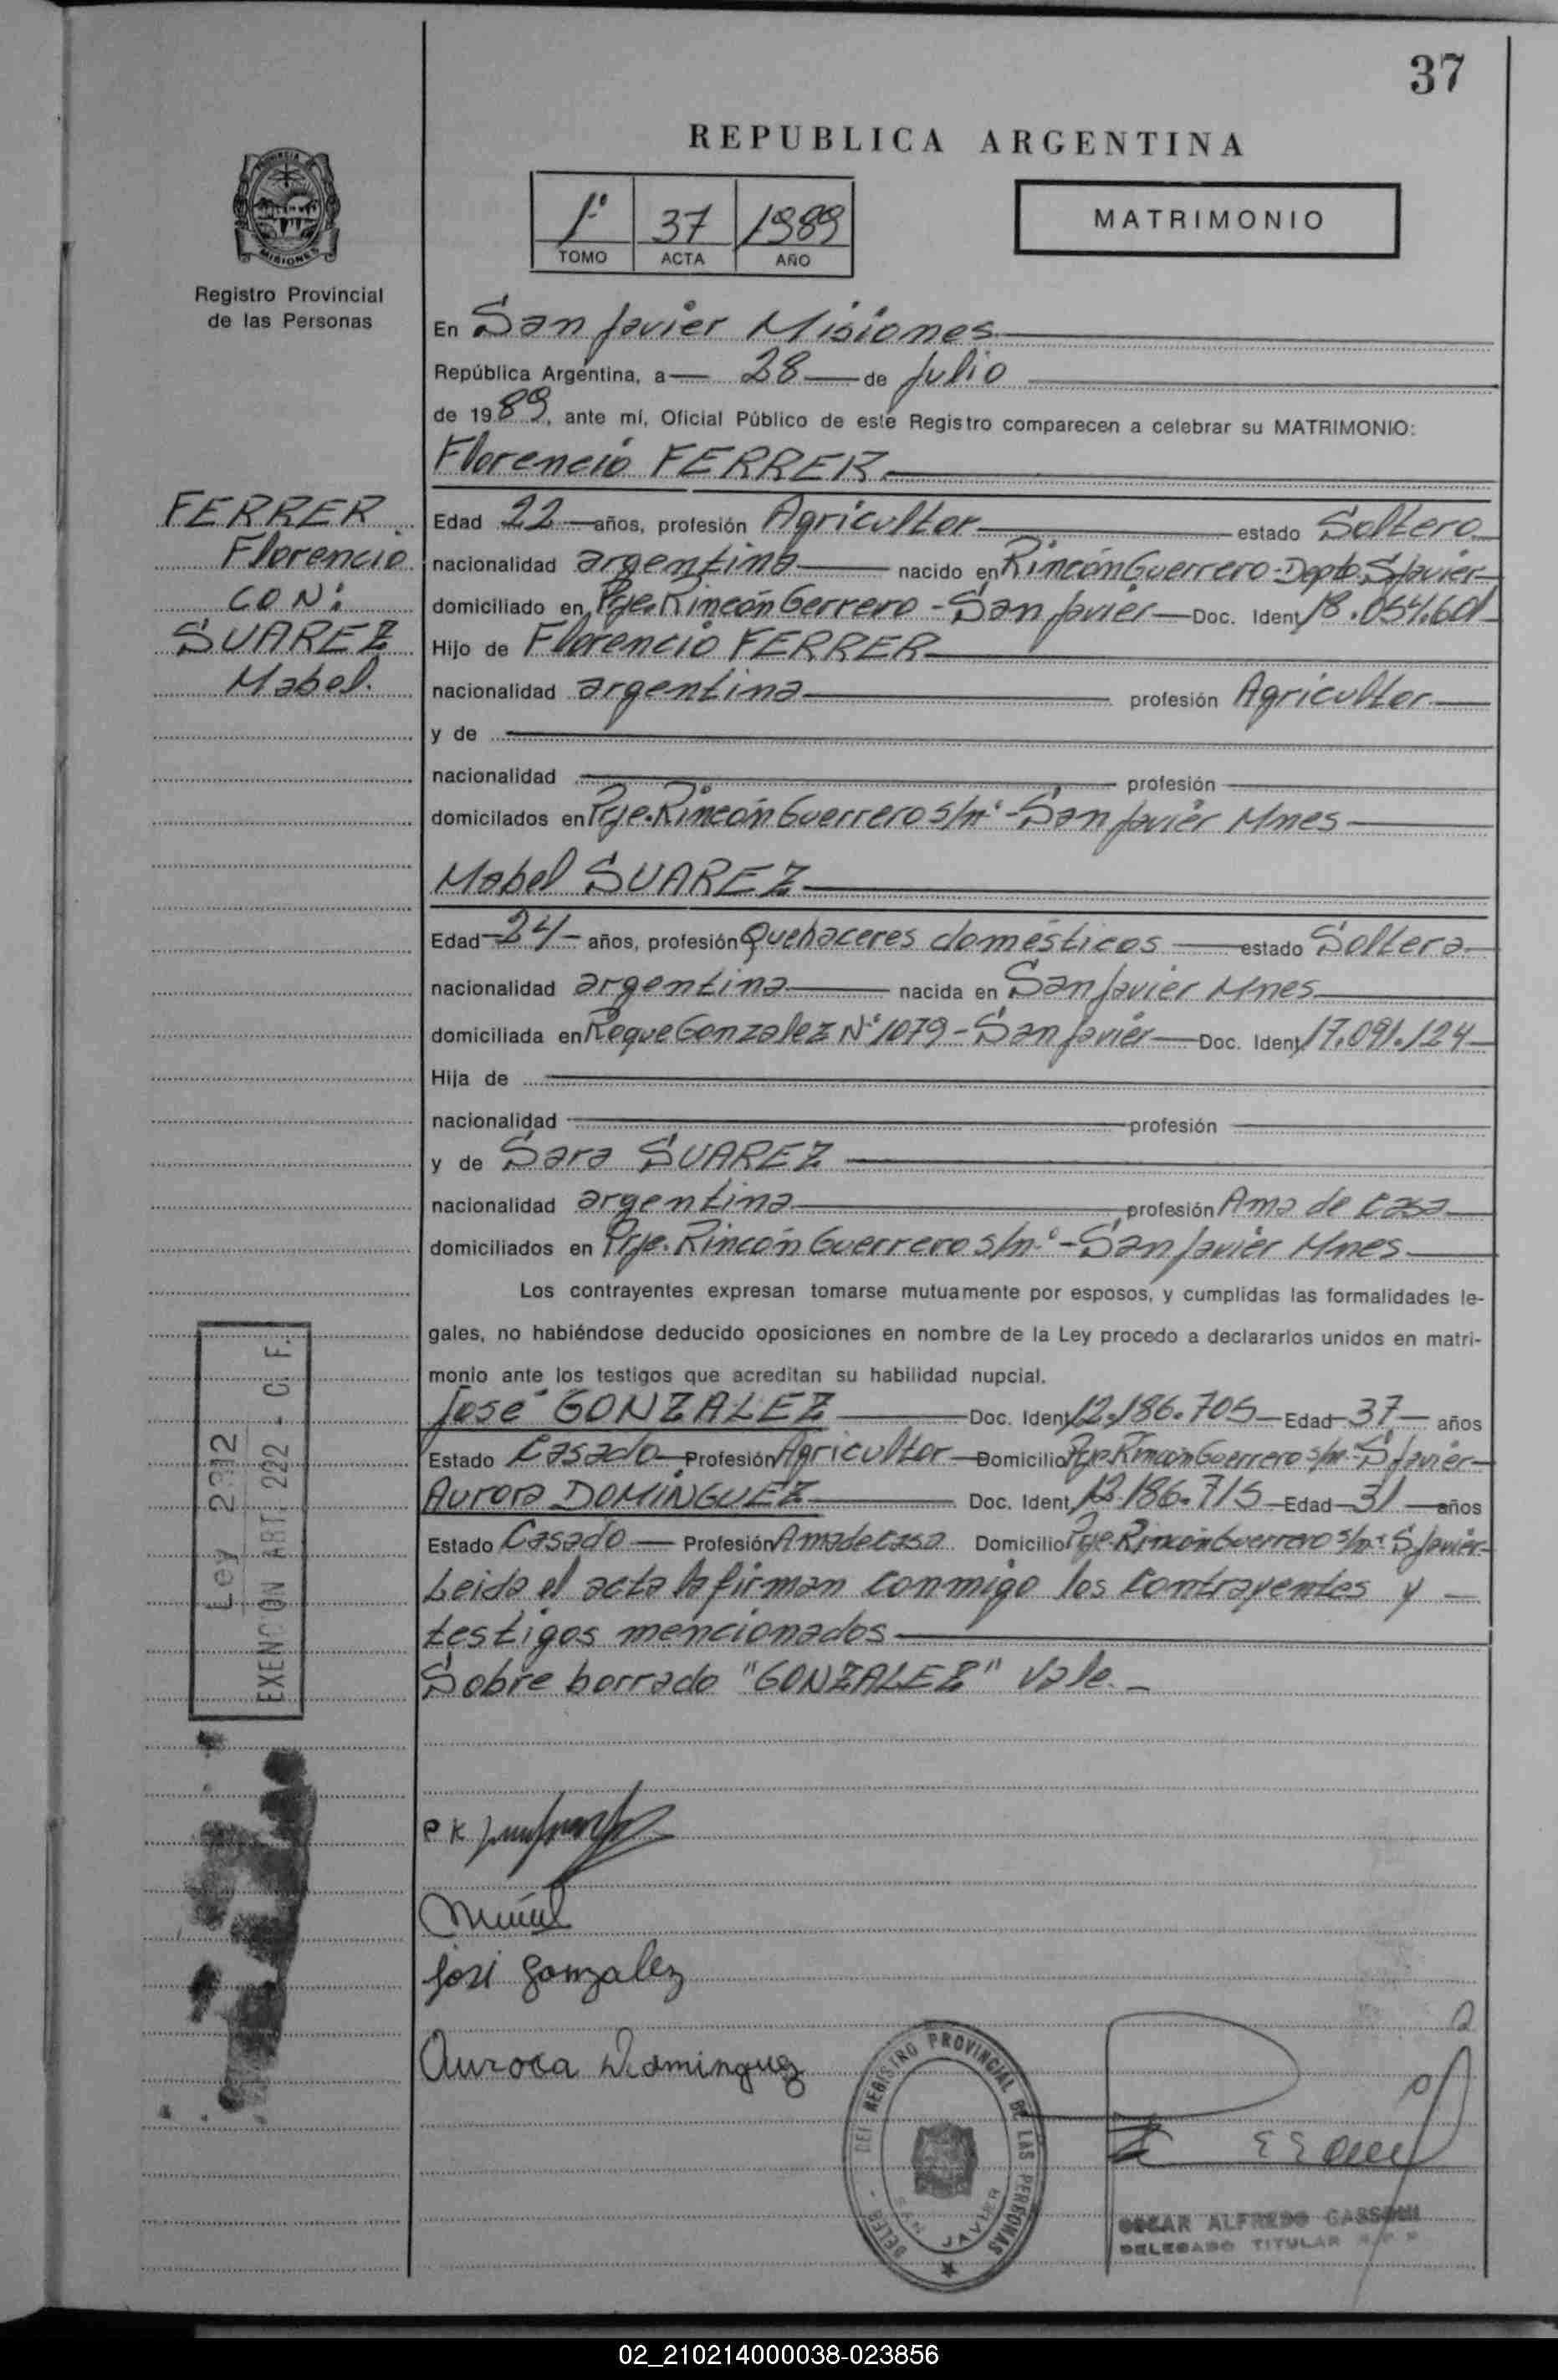 37
REPUBLICA ARGENTINA
PROVINCIA DE MISIONES
Registro Provincial
de las Personas
1º 37 1989
TOMO ACTA AÑO
MATRIMONIO
En San Javier Misiones
República Argentina, a 28 de Julio
de 1989, ante mí, Oficial Público de este Registro comparecen a celebrar su MATRIMONIO:
Florencio FERRER
FERRER
Florencio
CON:
SUAREZ
Mabel.
Edad 22 años, profesión Agricultor estado Soltero
nacionalidad argentina nacido en Rincón Guerrero-Depto. S Javier
domiciliado en Pje. Rincón Gerrero - San Javier Doc. Ident. 18.054.601
Hijo de Florencio FERRER
nacionalidad argentina profesión Agricultor
y de
nacionalidad profesión
domicilados en Pje. Rincón Guerrero s/nº - San Javier Mnes
Mabel SUAREZ
Edad 24 años, profesión Quehaceres domésticos estado Soltera
nacionalidad argentina nacida en San Javier Mnes
domiciliada en Roque Gonzalez Nº 1079 - San Javier Doc. Ident. 17.091.124
Hija de
nacionalidad profesión
y de Sara SUAREZ
nacionalidad argentina profesión Ama de casa
domiciliados en Pje. Rincón Guerrero s/nº - San Javier Mnes
Los contrayentes expresan tomarse mutuamente por esposos, y cumplidas las formalidades le-
gales, no habiéndose deducido oposiciones en nombre de la Ley procedo a declararlos unidos en matri-
monio ante los testigos que acreditan su habilidad nupcial.
José GONZALEZ Doc. Ident. 12.186.705 Edad 37 años
Estado Casado Profesión Agricultor Domicilio Pje. Rincón Guerrero s/nº S Javier
Aurora DOMINGUEZ Doc. Ident. 186.715 Edad 31 años
Estado Casado Profesión Ama de casa Domicilio Pje. Rincón Guerrero s/nº S Javier
Leida el acta la firman conmigo los contrayentes y
testigos mencionados
Sobre borrado "GONZALEZ" Vale.
Ley 2312
EXENCION ART. 222 - C. F.
José Gonzalez
Aurora Dominguez
DELEG. DEL REGISTRO PROVINCIAL DE LAS PERSONAS
SAN JAVIER
OSCAR ALFREDO
DELEGADO TITULAR
02_210214000038-023856